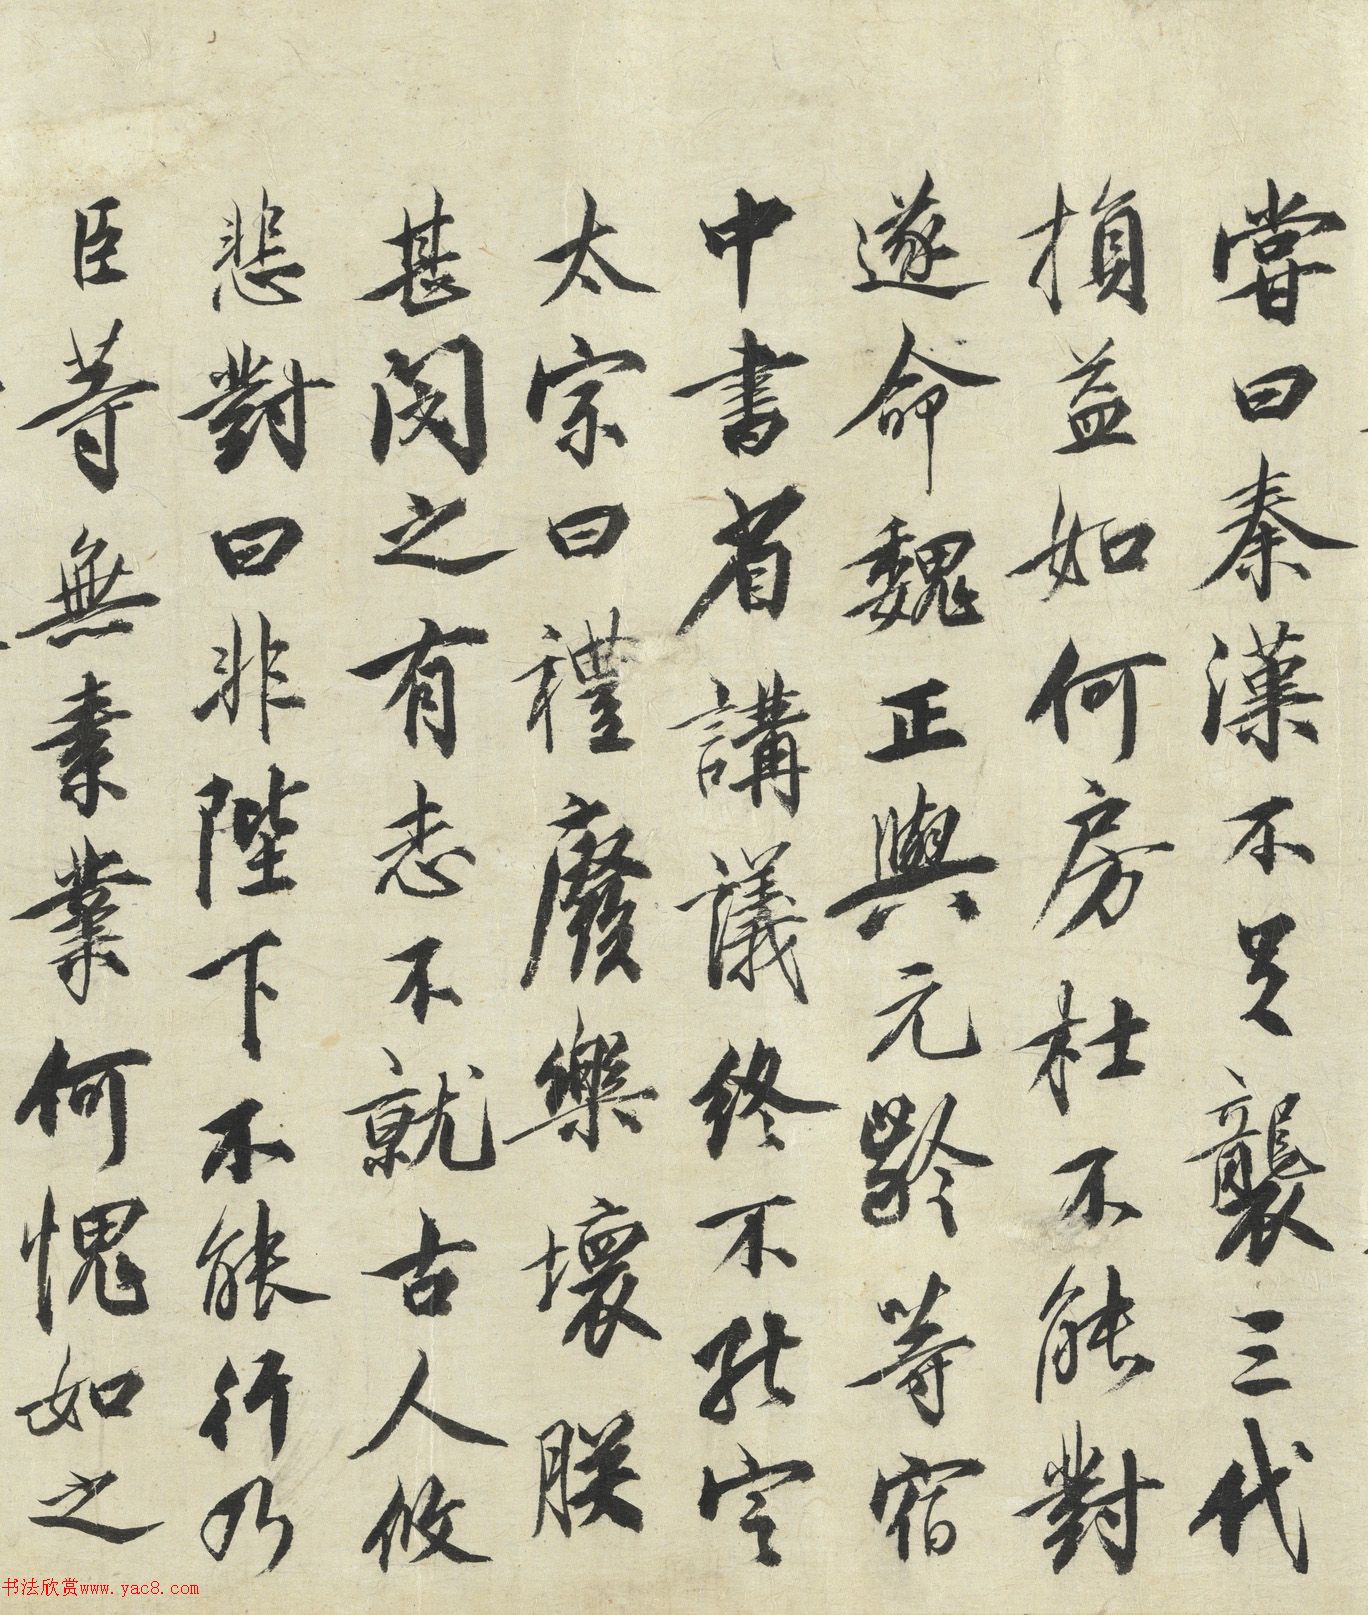 嘗曰秦漢不足襲三代
損益如何房杜不能對
遂命魏正與元齡等宿
中書省講議終不能定
太宗曰禮廢樂壞朕
甚閔之有志不就古人攸
悲對曰非陛下不能行乃
臣等無素業何愧如之
书法欣赏www.yac8.com